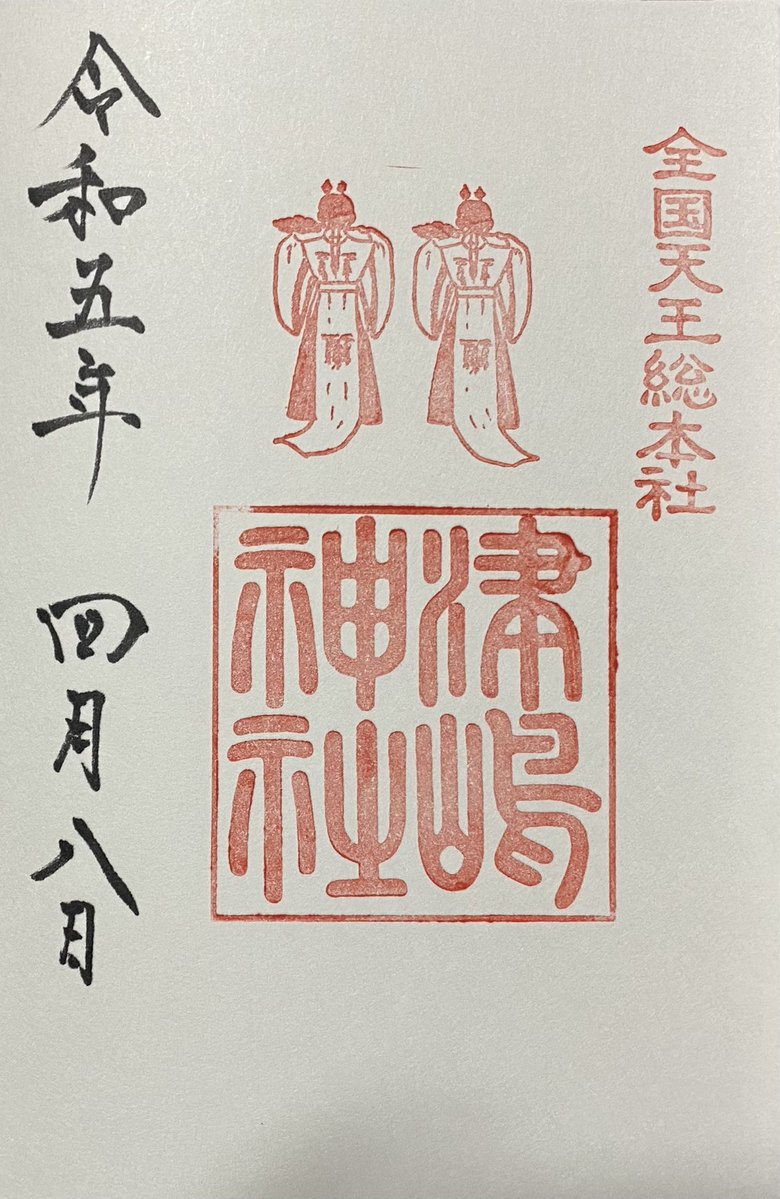 全国天王総本社
津嶋神社
令和五年 四月八日